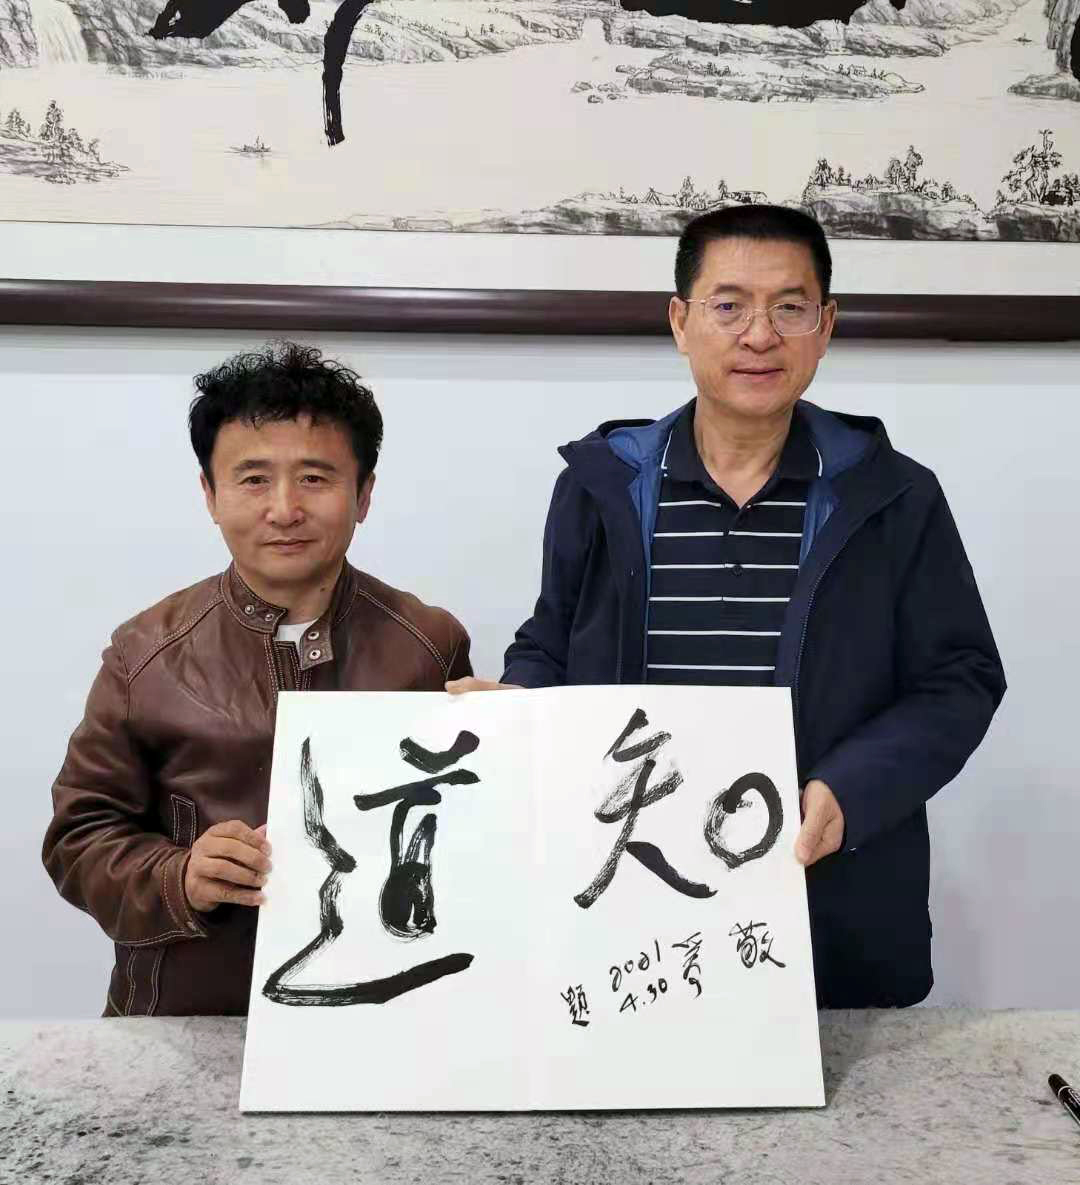 知道
敬
2021
4.30
題